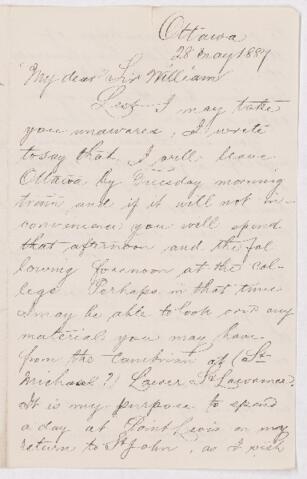 Ottawa
28 May 1887
"My dear" Sir William
Lest I may take
you unawares, I write
to say that I will leave
Ottawa by Tuesday morning
train, and if it will not in-
convenience you will spend
that afternoon and the fol
lowing forenoon at the col-
lege. Perhaps in that time
I may be able to look over any
material you may have
from the Cambrian of (St
Michael?) Lower St Lawrence.
It is my purpose to spend
a day at Point Levis on my
return to St John, as I wish